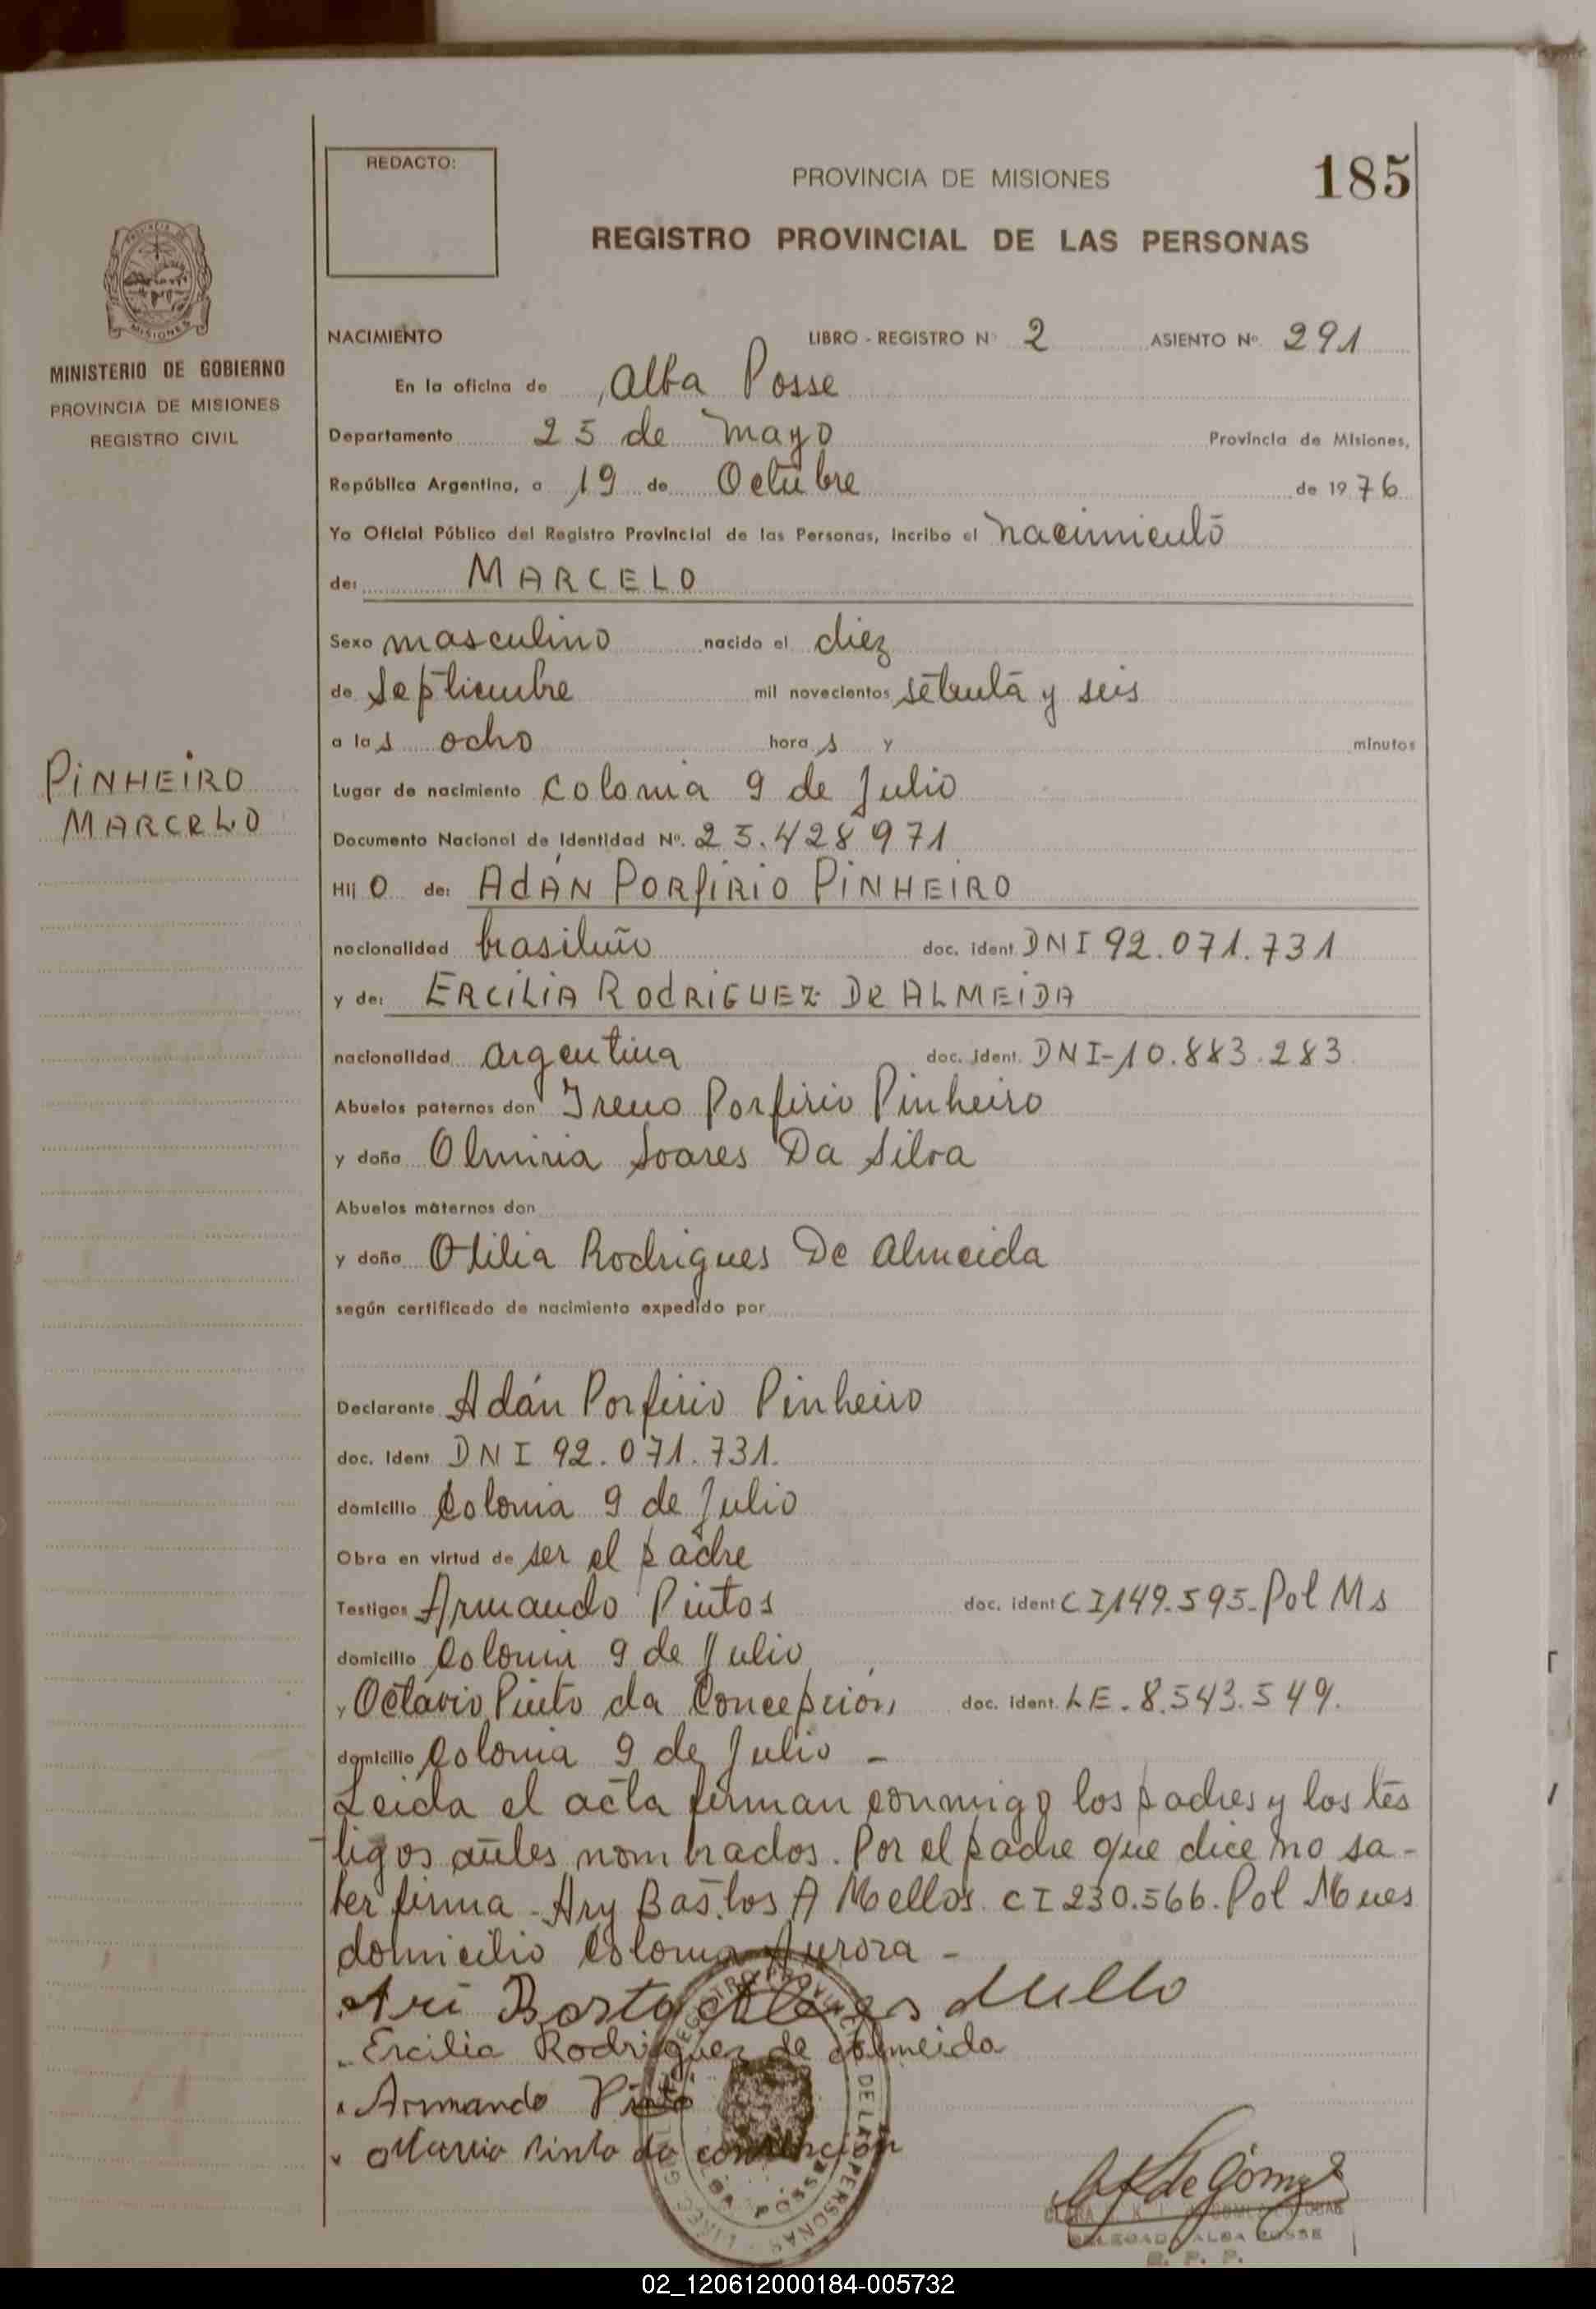 185
REDACTO:
PROVINCIA DE MISIONES
REGISTRO PROVINCIAL DE LAS PERSONAS
MISIONES
MINISTERIO DE GOBIERNO
PROVINCIA DE MISIONES
REGISTRO CIVIL
NACIMIENTO LIBRO - REGISTRO Nº 2 ASIENTO Nº 291
En la oficina de Alba Posse
Departamento 25 de Mayo Provincia de Misiones,
República Argentina, a 19 de Octubre de 1976
Yo Oficial Público del Registro Provincial de las Personas, incribo el nacimiento
de: MARCELO
Sexo masculino nacido el diez
de Septiembre mil novecientos setenta y seis
a las ocho horas y minutos
PINHEIRO
MARCELO
Lugar de nacimiento Colonia 9 de Julio
Documento Nacional de Identidad Nº. 25.428971
Hijo de: ADÁN PORFIRIO PINHEIRO
nacionalidad brasileño doc. ident. DNI 92.071.731
y de: ERCILIA RODRIGUEZ DE ALMEIDA
nacionalidad argentina doc. ident. DNI-10.883.283
Abuelos paternos don Ireno Porfirio Pinheiro
y doña Olmiria Soares Da Silva
Abuelos maternos don
y doña Otilia Rodrigues De Almeida
según certificado de nacimiento expedido por
Declarante Adán Porfirio Pinheiro
doc. ident DNI 92.071.731.
domicilio Colonia 9 de Julio
Obra en virtud de ser el padre
Testigos Armando Pintos doc. ident CI 149.595-Pol Ms
domicilio Colonia 9 de Julio
y Octavio Pinto da Concepción, doc. ident. LE-8.543.549.
domicilio Colonia 9 de Julio -
Leida el acta firman conmigo los padres y los tes
tigos antes nombrados. Por el padre que dice no sa-
ber firma - Ary Bastos A Mellos CI 230.566. Pol Mnes
domicilio Colonia Aurora -
Ari Mello
Ercilia Rodriguez de Almeida
Armando Pinto
Pinto da
de Gómez
DELEGADA ALBA POSSE
R. P. P.
02_120612000184-005732